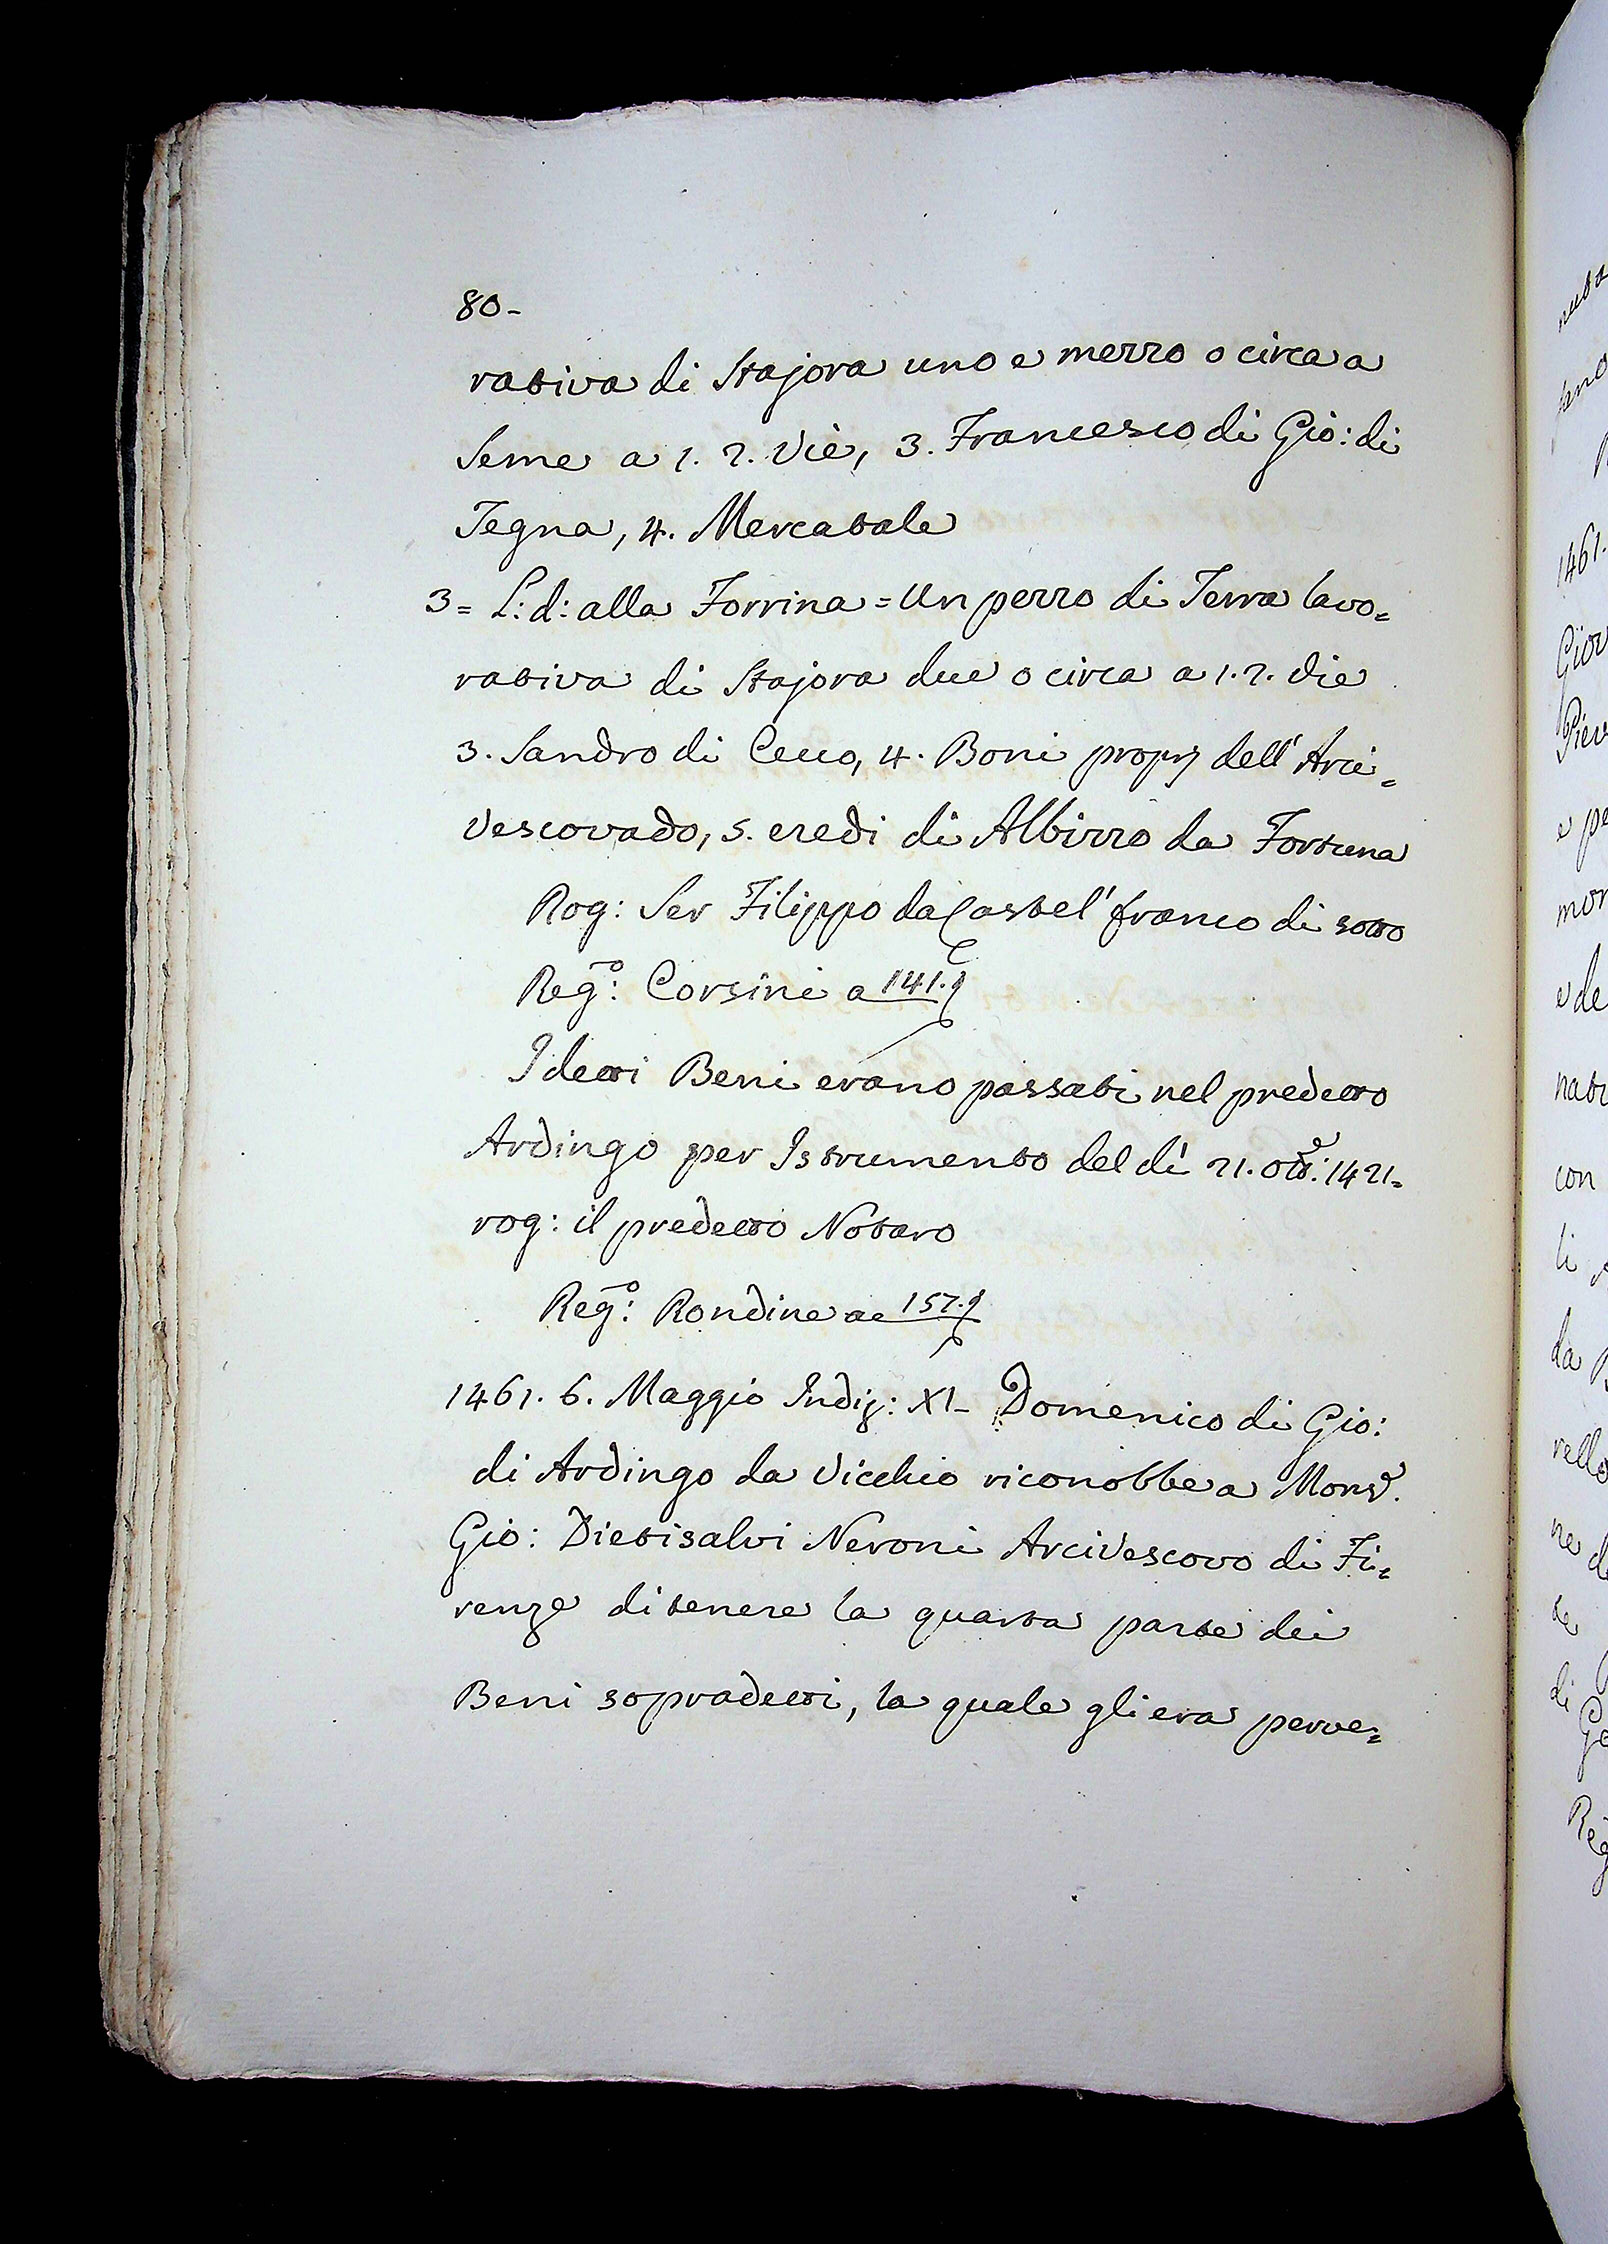 80-
rativa di Stajora uno e mezzo o circa a
Seme a 1. 2. Vie, 3. Francesco di Gio: di
Tegna, 4. Mercatale
3= L: d: alla Torrina = Un pezzo di Terra lavo=
rativa di Stajora due o circa a 1. 2. Vie
3. Sandro di Cecco, 4. Boni proprj dell' Arci=
Vescovado, 5. eredi di Albizzo da Fortuna
Rog: Ser Filippo da Castel' franco di sotto
Reg:o Corsini a 141.
I detti Beni erano passati nel predetto
Ardingo per Istrumento del dì 21. Otte: 1421=
rog: il predetto Notaro
Reg:o Rondine a c 157.
1461. 6. Maggio Indiz: XI- Domenico di Gio:
di Ardingo da Vicchio riconobbe a Monsr.
Gio: Dietisalvi Neroni Arcivescovo di Fi=
renze di tenere la quarta parte dei
Beni sopradetti, la quale gli era perve=
1461.